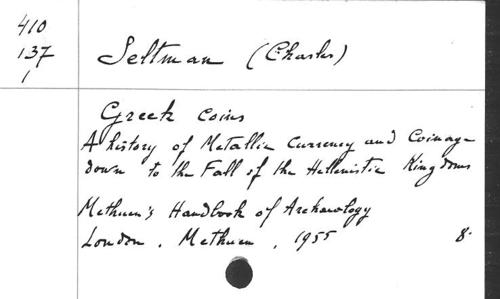 410
137
1
Seltman (Charles)
Greek Coins
A history of Metallic Currency and Coinage
down to the Fall of the Hellenistic Kingdoms
Methuen's Handbook of Archaeology
London. Methuen, 1955 8.